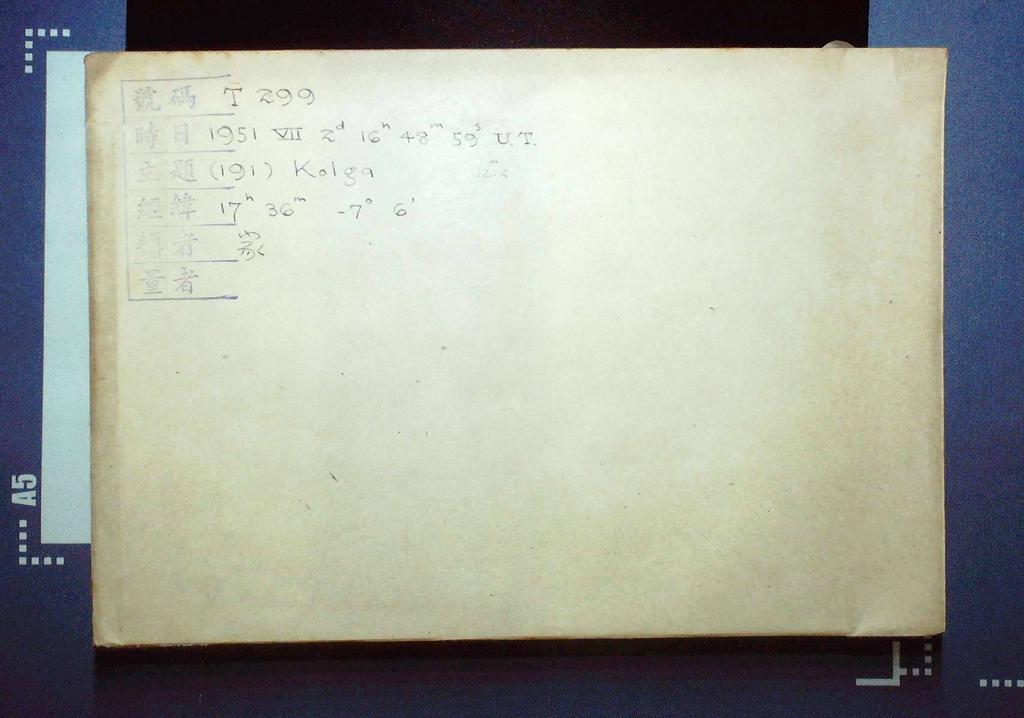 號碼 T 299
時日 1951 VII 2d 16h 48m 59s U.T.
主題 (191) Kolga
經緯 17h 36m -7° 6'
者
量者
A5